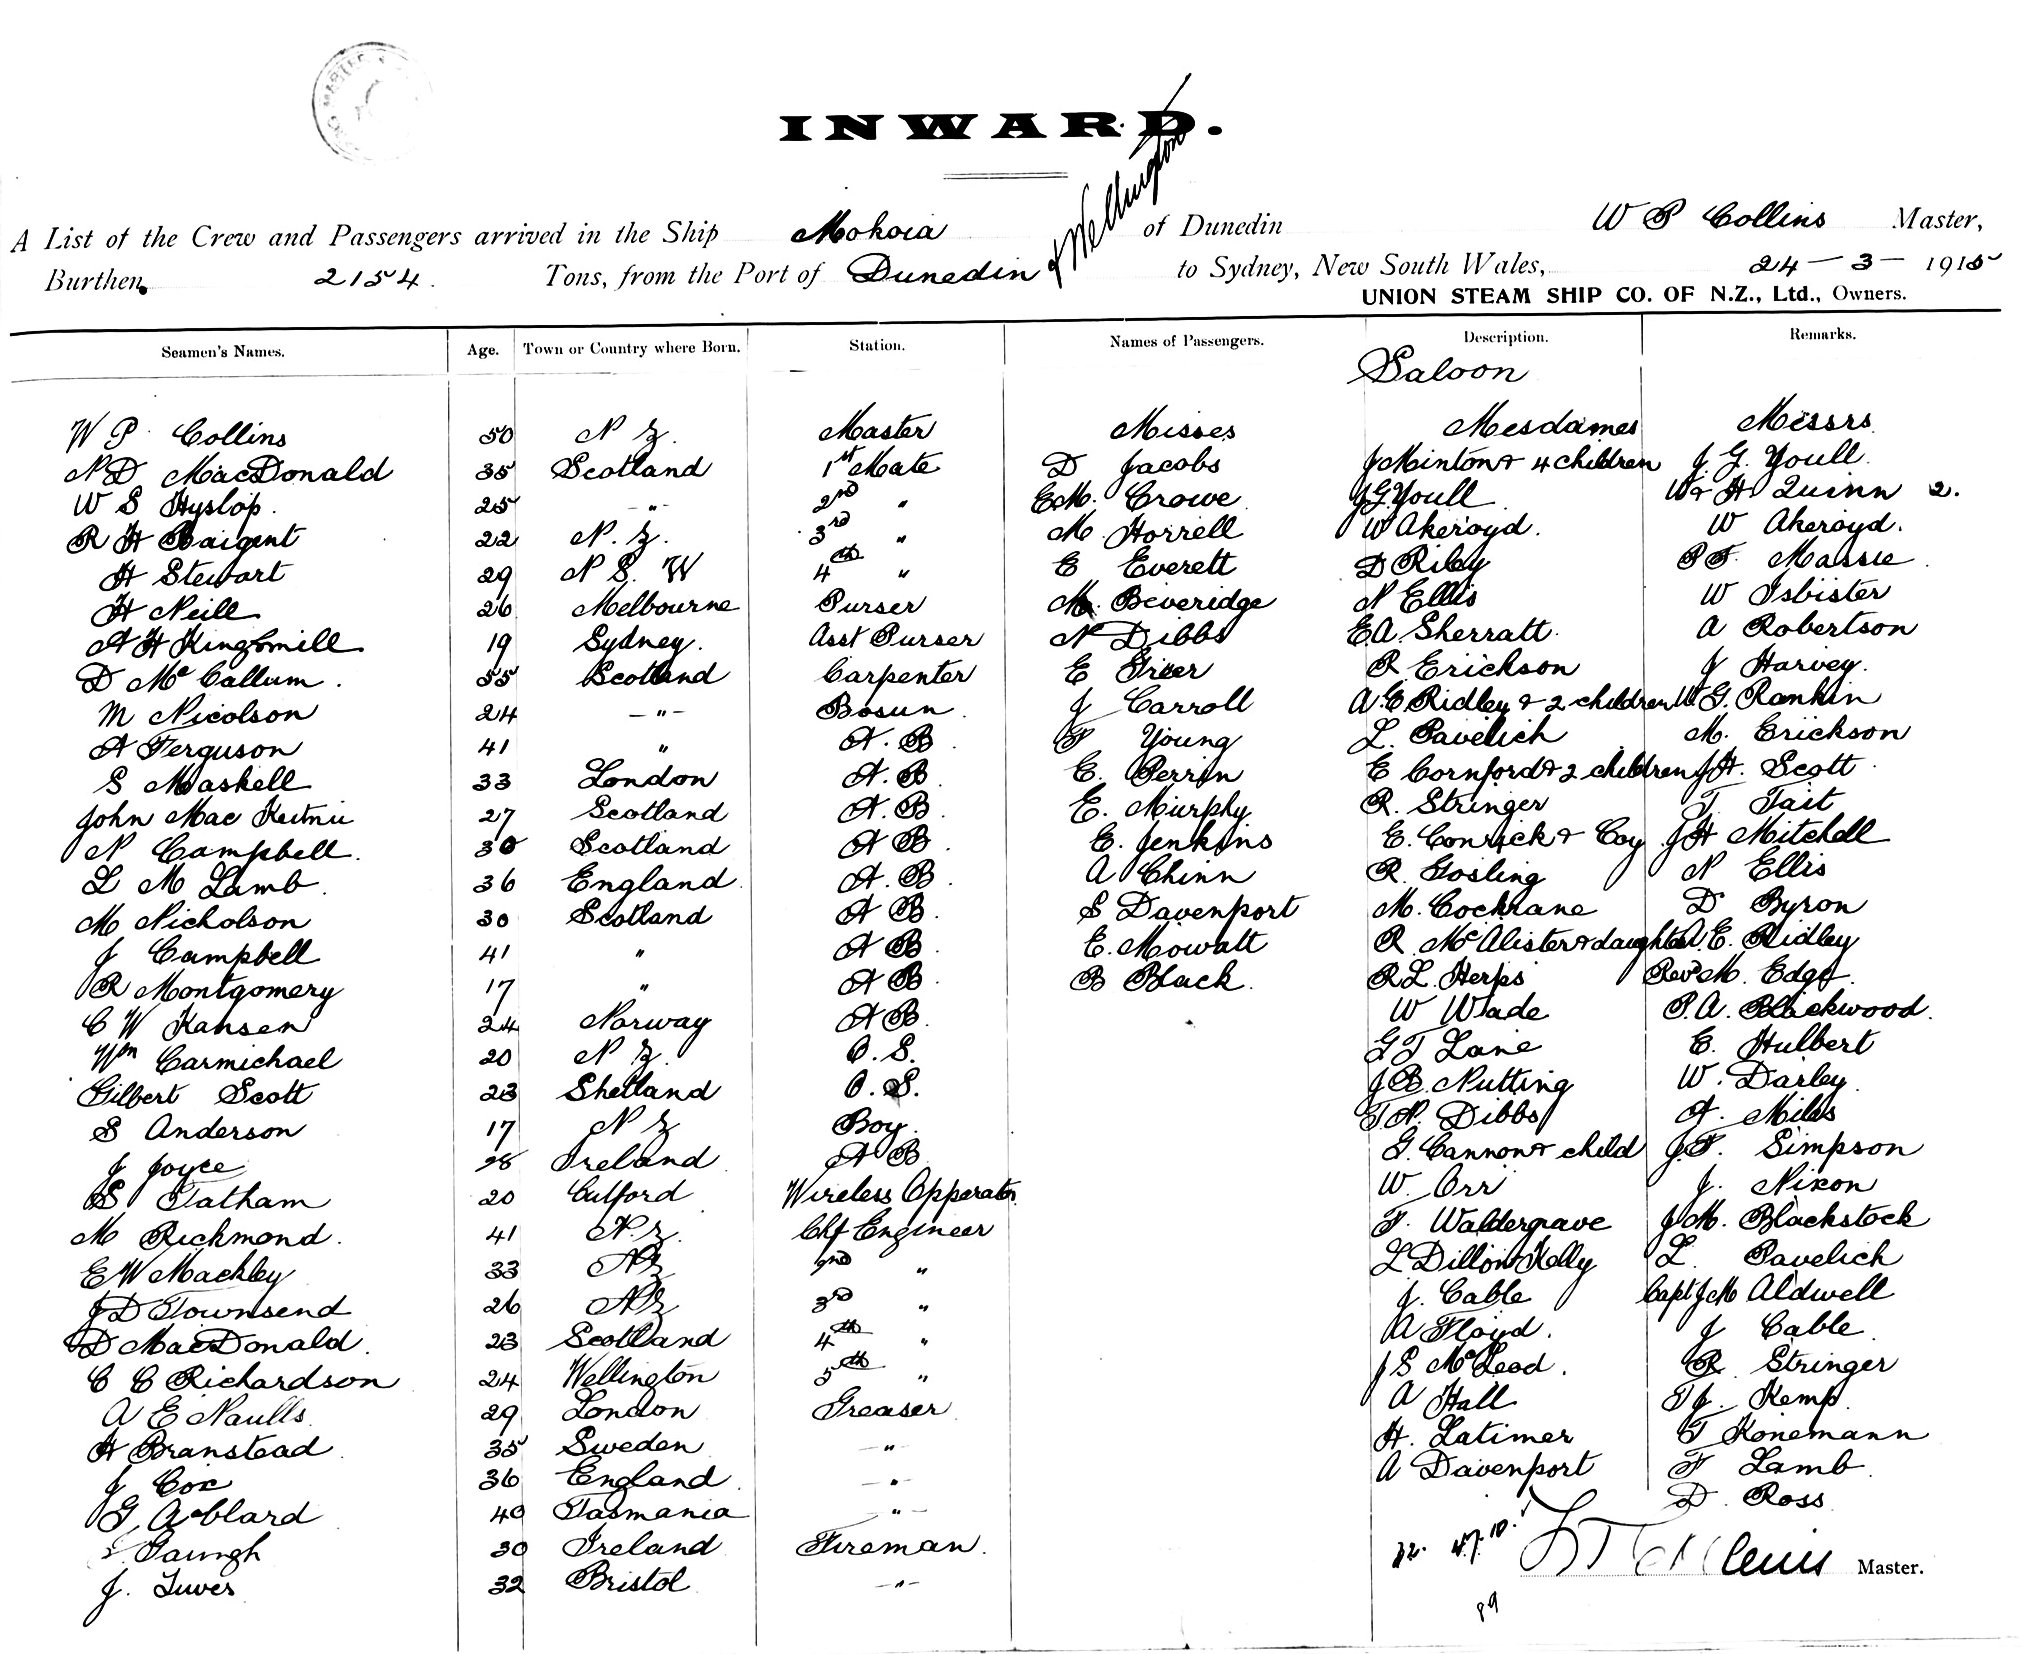 INWARD.
& Wellington
A List of the Crew and Passengers arrived in the Ship Mokoia of Dunedin W P Collins Master,
Burthen, 2154 Tons, from the Port of Dunedin to Sydney, New South Wales, 24-3-1915
UNION STEAM SHIP CO. OF N.Z., Ltd., Owners.
Seamen's Names. Age. Town or Country where Born. Station. Names of Passengers. Description. Remarks.
Saloon
W P Collins 50 N Z. Master Misses Mesdames Messrs
N D MacDonald 35 Scotland 1st Mate D Jacobs J Minton & 4 children J. G. Youll
W S Hyslop. 25 -"- 2nd " E.M. Crowe J G Youll W & H Quinn 2.
R H Baigent 22 N. Z. 3rd " M Horrell W Akeroyd W Akeroyd.
H Stewart 29 N S. W 4th " E Everett D Riley P F. Massie
H Neill 26 Melbourne Purser M. Beveridge N Ellis W Isbister
A H Kingsmill 19 Sydney. Asst Purser N Dibbs E.A. Sherratt. A Robertson
D McCallum. 55 Scotland Carpenter E R Erickson J Harvey.
M Nicolson 24 -"- Bosun J Carroll A. E Ridley & 2 children W. G. Rankin
A Ferguson 41 " A. B. F Young L. Pavelich M. Erickson
S Maskell 33 London A. B. E. Perrin E Cornford & 2 children J H. Scott
John Mac 27 Scotland A. B. E. Murphy R. Stringer T. Tait
N Campbell. 30 Scotland A B E. Jenkins E. Conrick & Coy J H Mitchell
L M Lamb. 36 England A. B. A Chinn R. Gosling N Ellis
M Nicholson 30 Scotland A B. S Davenport M. Cochrane D Byron
J Campbell 41 " A B. E. Mowatt R. McAlister & daughter A. E. Ridley
R Montgomery 17 " A B. B Black. R L. Herps Revd M. Edge
C W Hansen 24 Norway A B. W Wade P. A. Blackwood.
Wm Carmichael 20 N Z. O. S. G T Lane E. Hulbert
Gilbert Scott 23 Shetland O. S. J B. Nutting W. Darley.
S Anderson 17 N Z Boy. T N. Dibbs A. Miles
J Joyce 28 Ireland A B G. Cannon & child J. F. Simpson
S Tatham 20 Culford Wireless Opperator W. Orr J. Nixon
M Richmond. 41 N. Z. Chf Engineer F. Waldergrave J M. Blackstock
E W Mackley 33 N Z 2nd " L Dillon Kelly L. Pavelich
J D Townsend 26 N Z 3rd " J. Cable Capt J M Aldwell
D MacDonald. 23 Scotland 4th " A Floyd. J Cable
C C Richardson 24 Wellington 5th " J S McLeod. R. Stringer
A E Naulls. 29 London Greaser A Hall T J. Kemp
H Branstead 35 Sweden -"- H. Latimer T Konemann
J Cox 36 England -"- A Davenport F Lamb.
G. Abblard 40 Tasmania -"- D. Ross
30 Ireland Fireman.
J. 32 Bristol -"-
32. 47. 10.
Master.
89